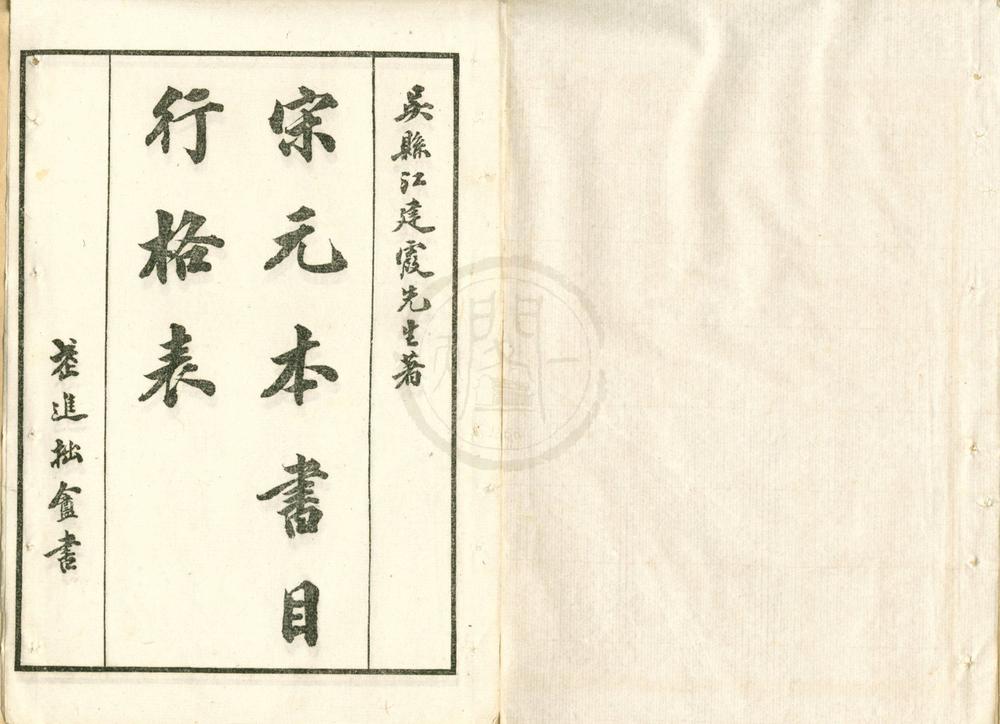 吳縣江建霞先生著
宋元本書目
行格表
進拙盦書